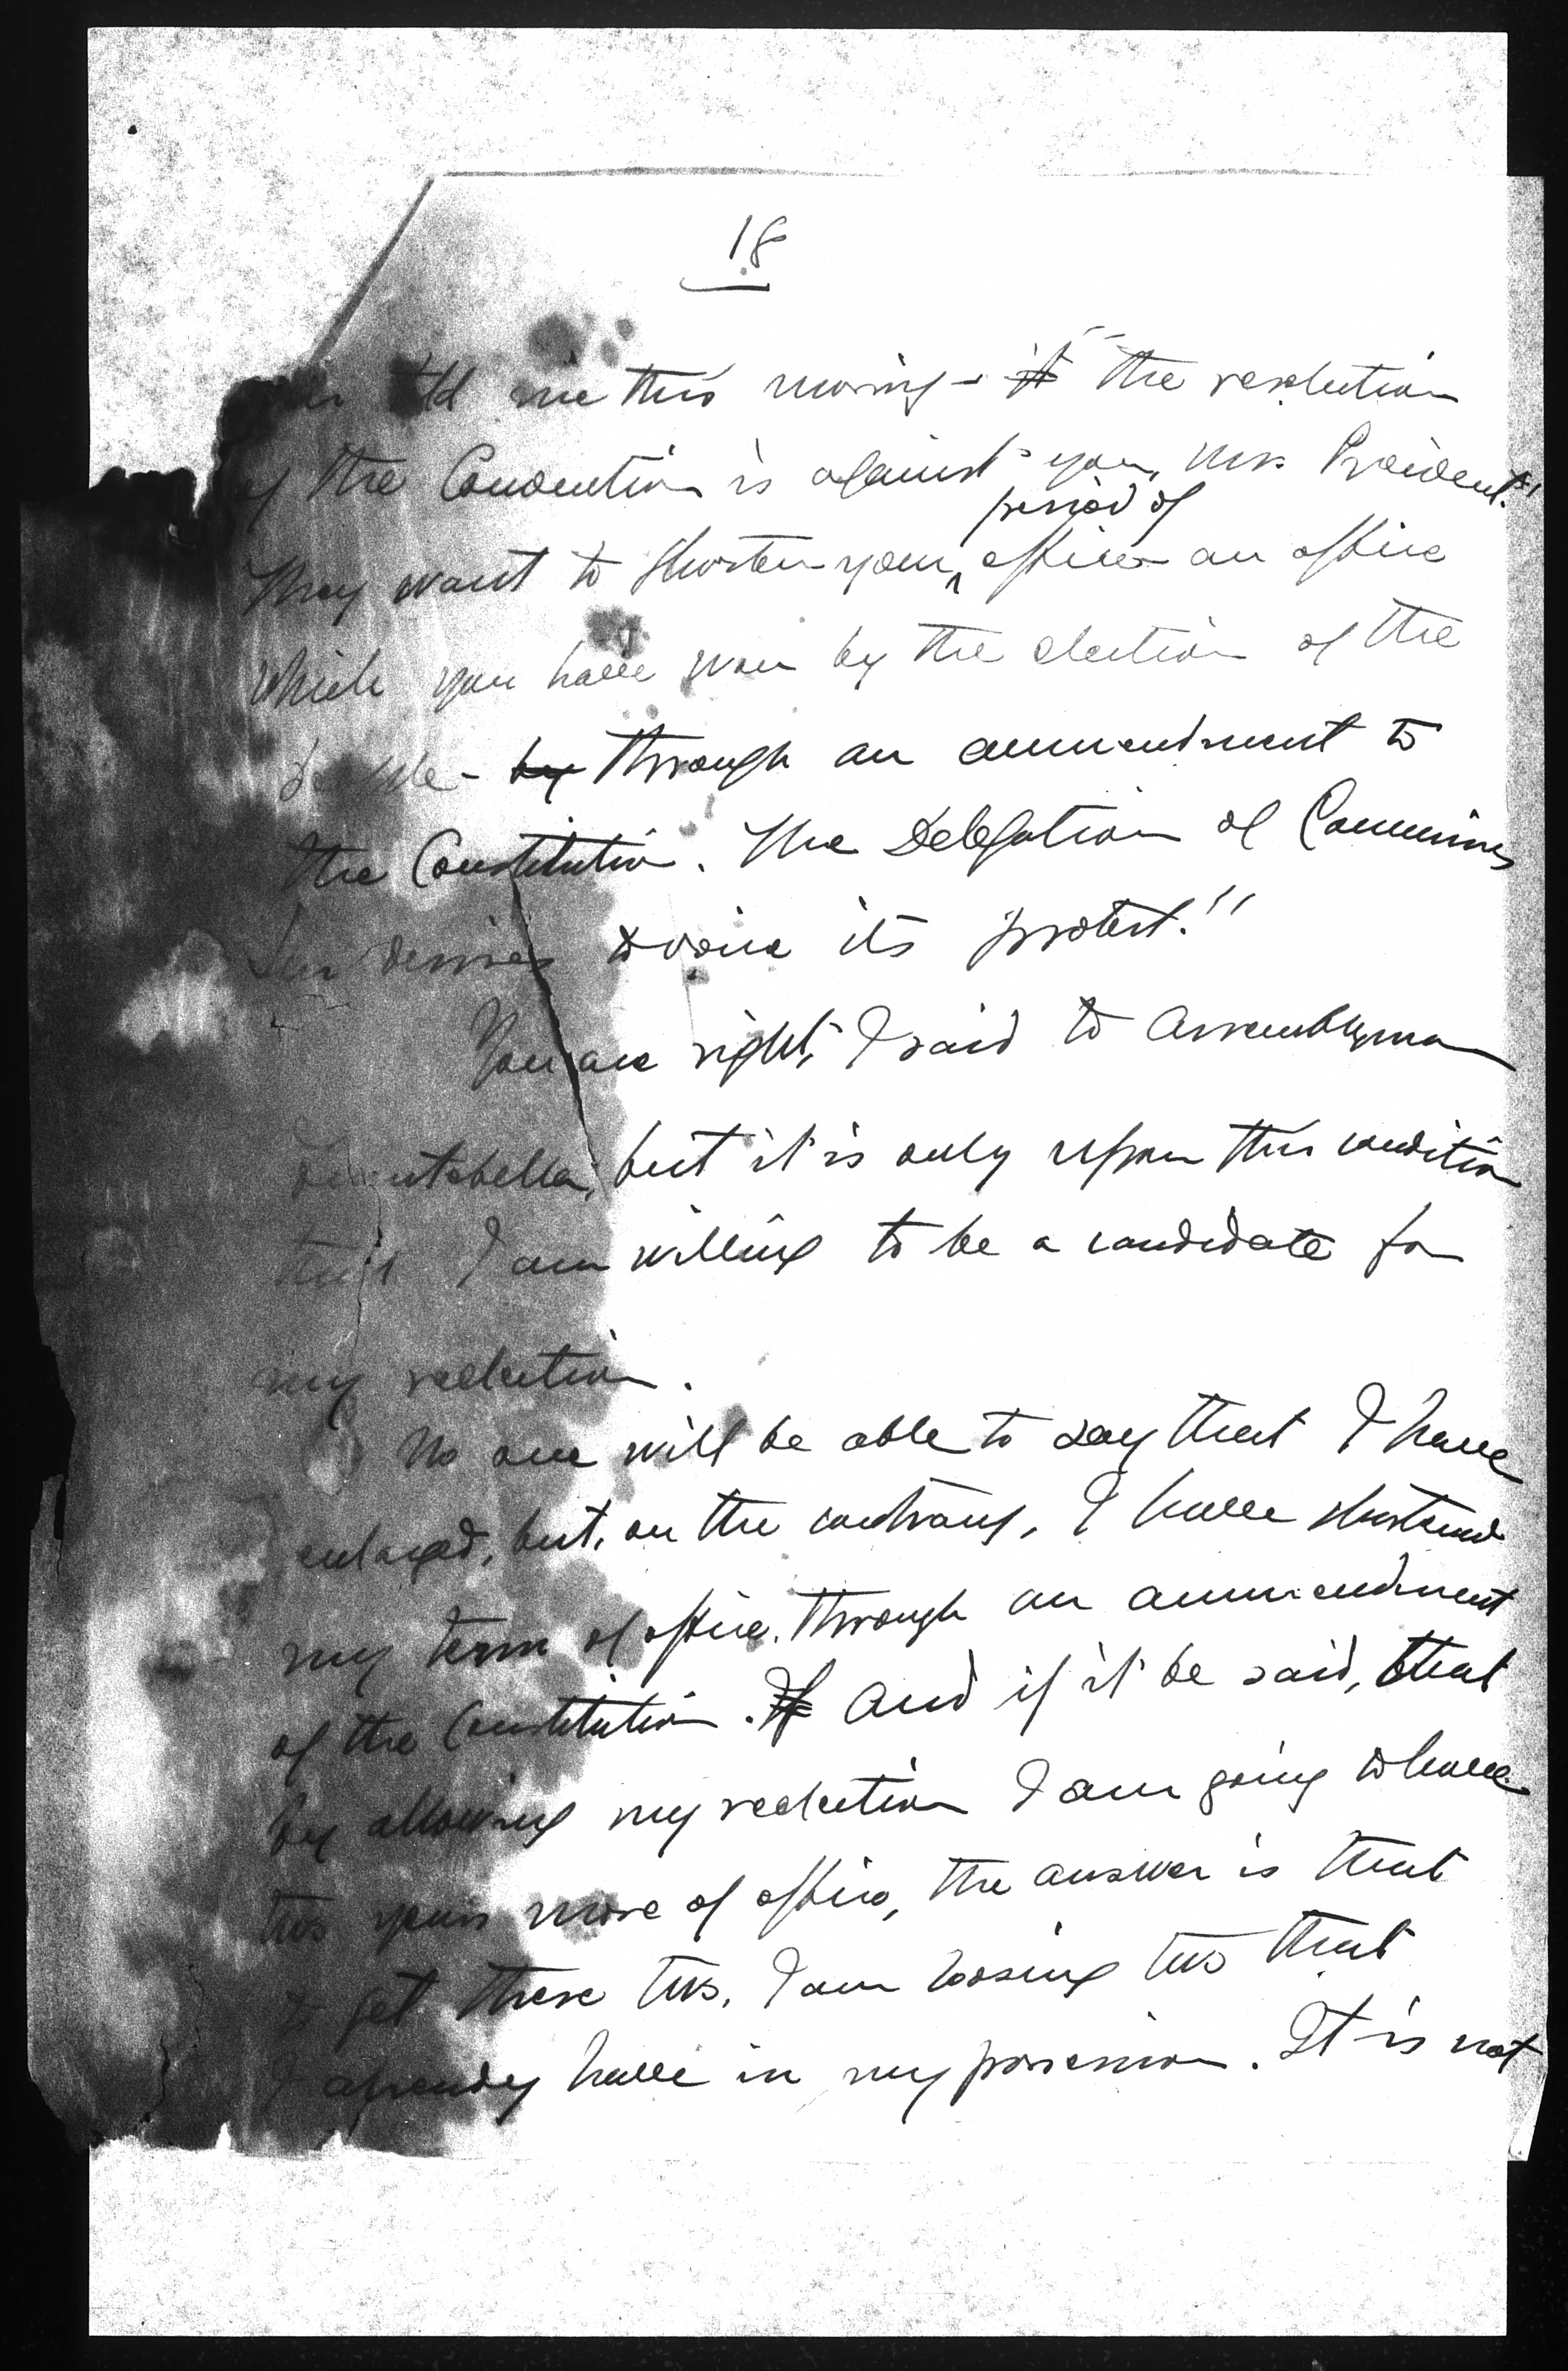 18
told me this morning - it the resolution
of the Convention is against you, Mr. President."
They want to shorten your period of office - an office
which you have won by the election of the
people - by through an ammendment to
the Constitution. The Delegation of Camarines
Sur desires to voice its protest."
You are right", I said to Assemblyman
but it is only upon this condition
that I am willing to be a candidate for
my reelection.
No one will be able to say that I have
enlarged, but, on the contrary, I have shortened
my term of office, through an ammendment
of the Constitution. If And if it be said, that
by allowing my reelection I am going to have
two years more of office, the answer is that
to get these two, I am loosing two that
I already have in my possession. It is not